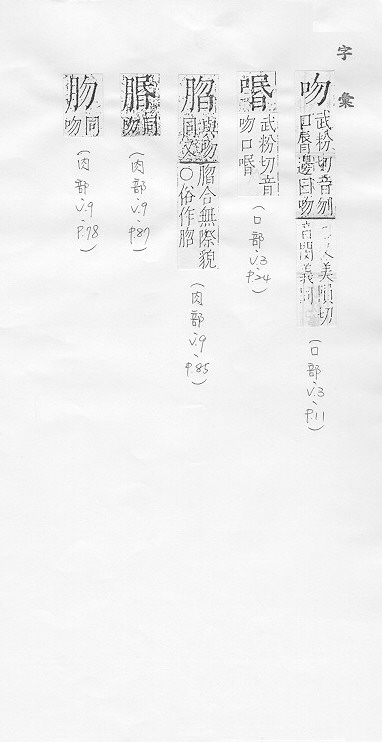 字彙
吻 武粉切音刎
口脣邊曰吻 美隕切
音閔義同
(口部、v.3、p.11)
㖧 武粉切音
吻口㖧
(口部、v.3、p.24)
與吻
同文 合無際貌
○俗作
(肉部、v.9、p.85)
同
吻
(肉部、v.9、p.87)
肳 同
吻
(肉部、v.9、p.78)